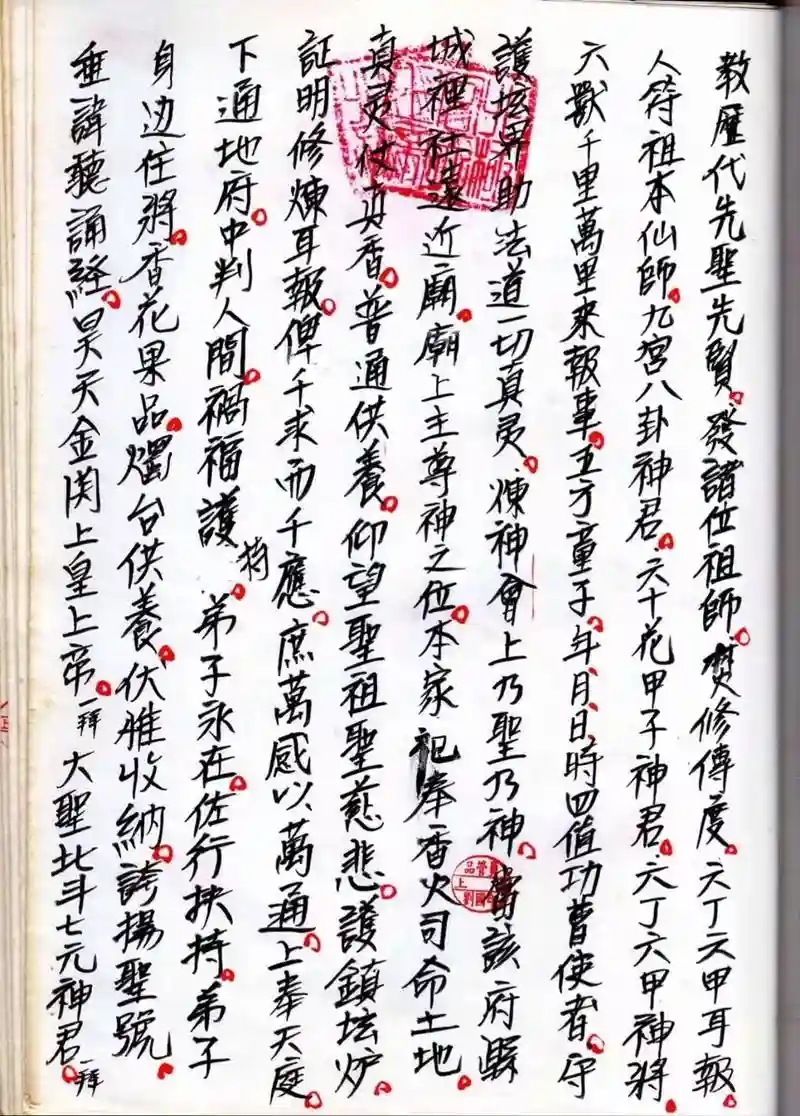 教歷代先聖先賢。發諸位祖師。焚修傳度。六丁六甲耳報。
人符祖本仙師。九宮八卦神君。六十花甲子神君。六丁六甲神將。
六獸千里萬里來報事。五方童子。年、月、日、時四值功曹使者。守
護坛界助法道一切真灵。煉神會上乃聖乃神。當該府縣
城裡社遠近廟。廟上主尊神之位。本家祀奉香火司命土地。
真灵仗真香。普通供養。仰望聖祖聖慈悲。護鎮坛炉。
証明修煉耳報。俾千求而千應。庶萬感以萬通。上奉天庭。
下通地府。中判人間。禍福護持。弟子永在。佐行扶持。弟子
身边住將。香花果品。燭台供養。伏惟收納。誇揚聖號。
垂諱聽誦経。昊天金関上皇上帝。一拜 大聖北斗七元神君。一拜